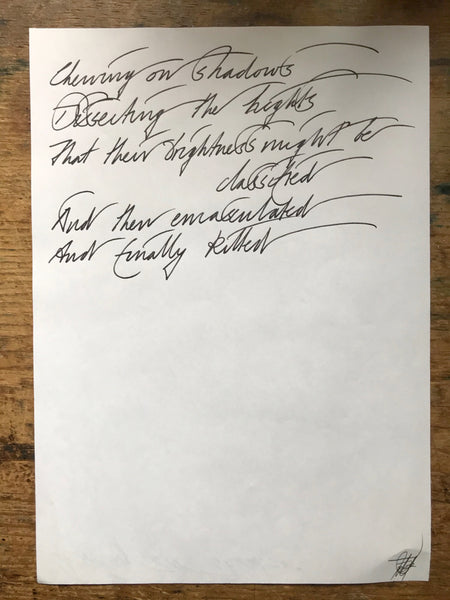 Chewing on shadows
Dissecting the lights
That their brightness might be
classified
And then emasculated
And finally killed